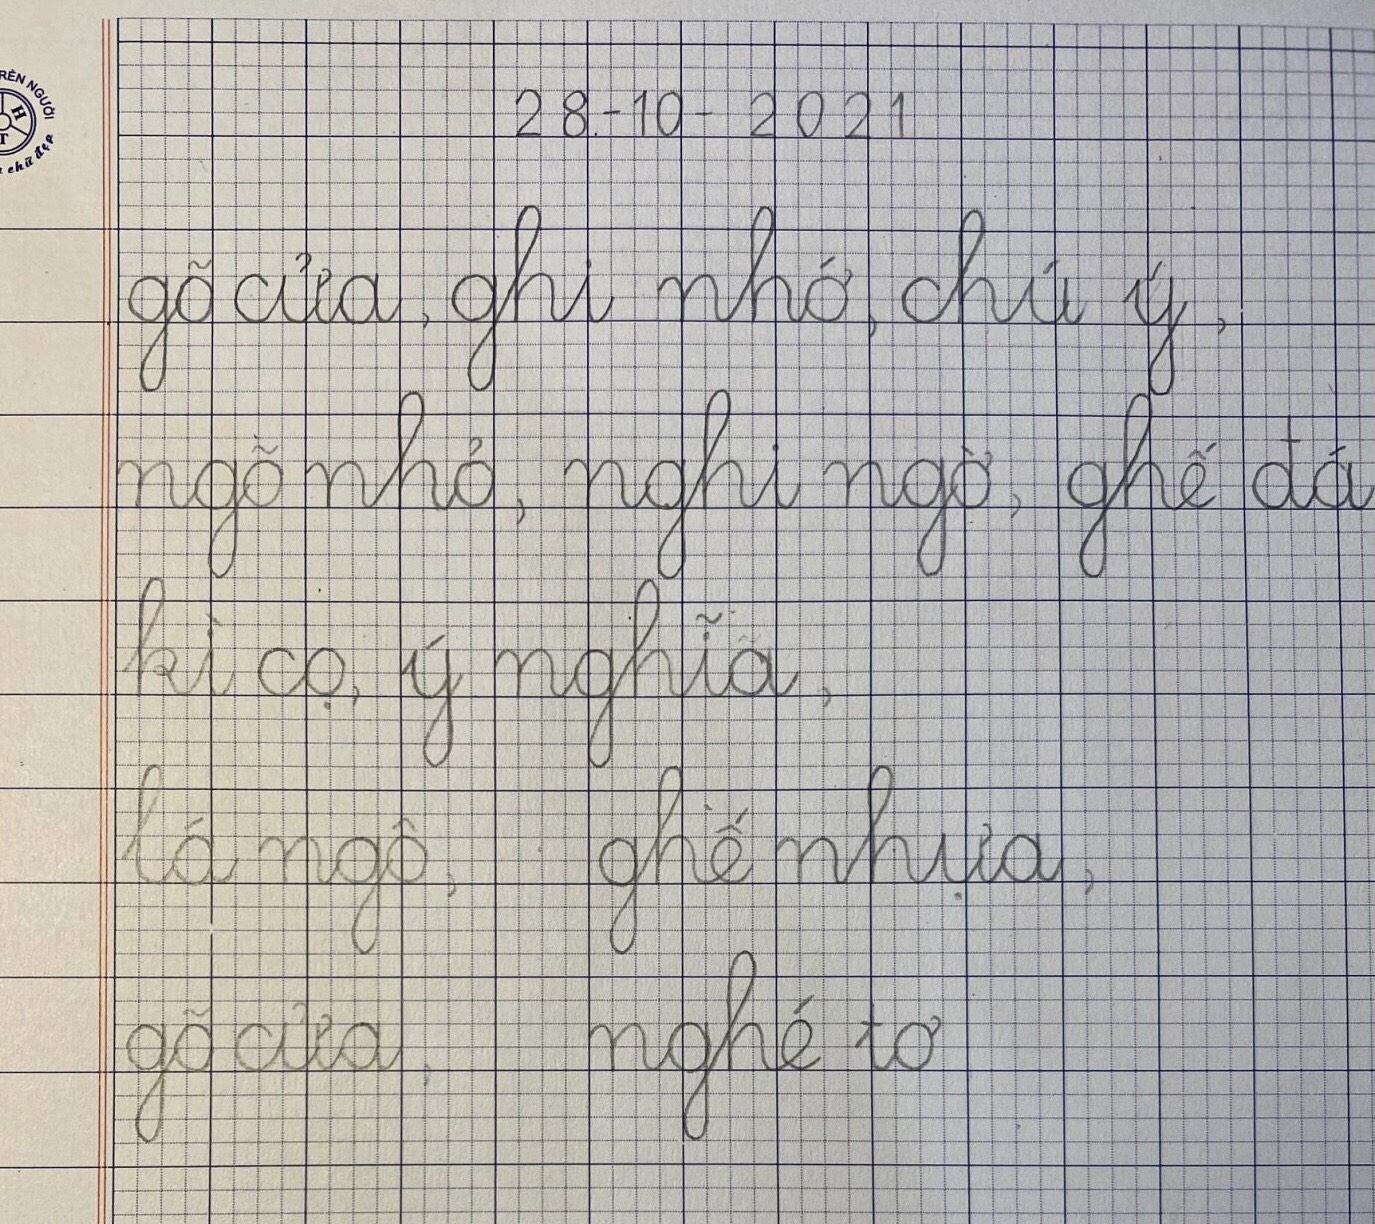 RÈN NGƯỜI
H
T
chữ đẹp
28-10-2021
gõ cửa, ghi nhớ, chú ý,
ngõ nhỏ, nghi ngờ, ghế đá
kì cọ, ý nghĩa,
lá ngô, ghế nhựa,
gõ cửa, nghé tơ